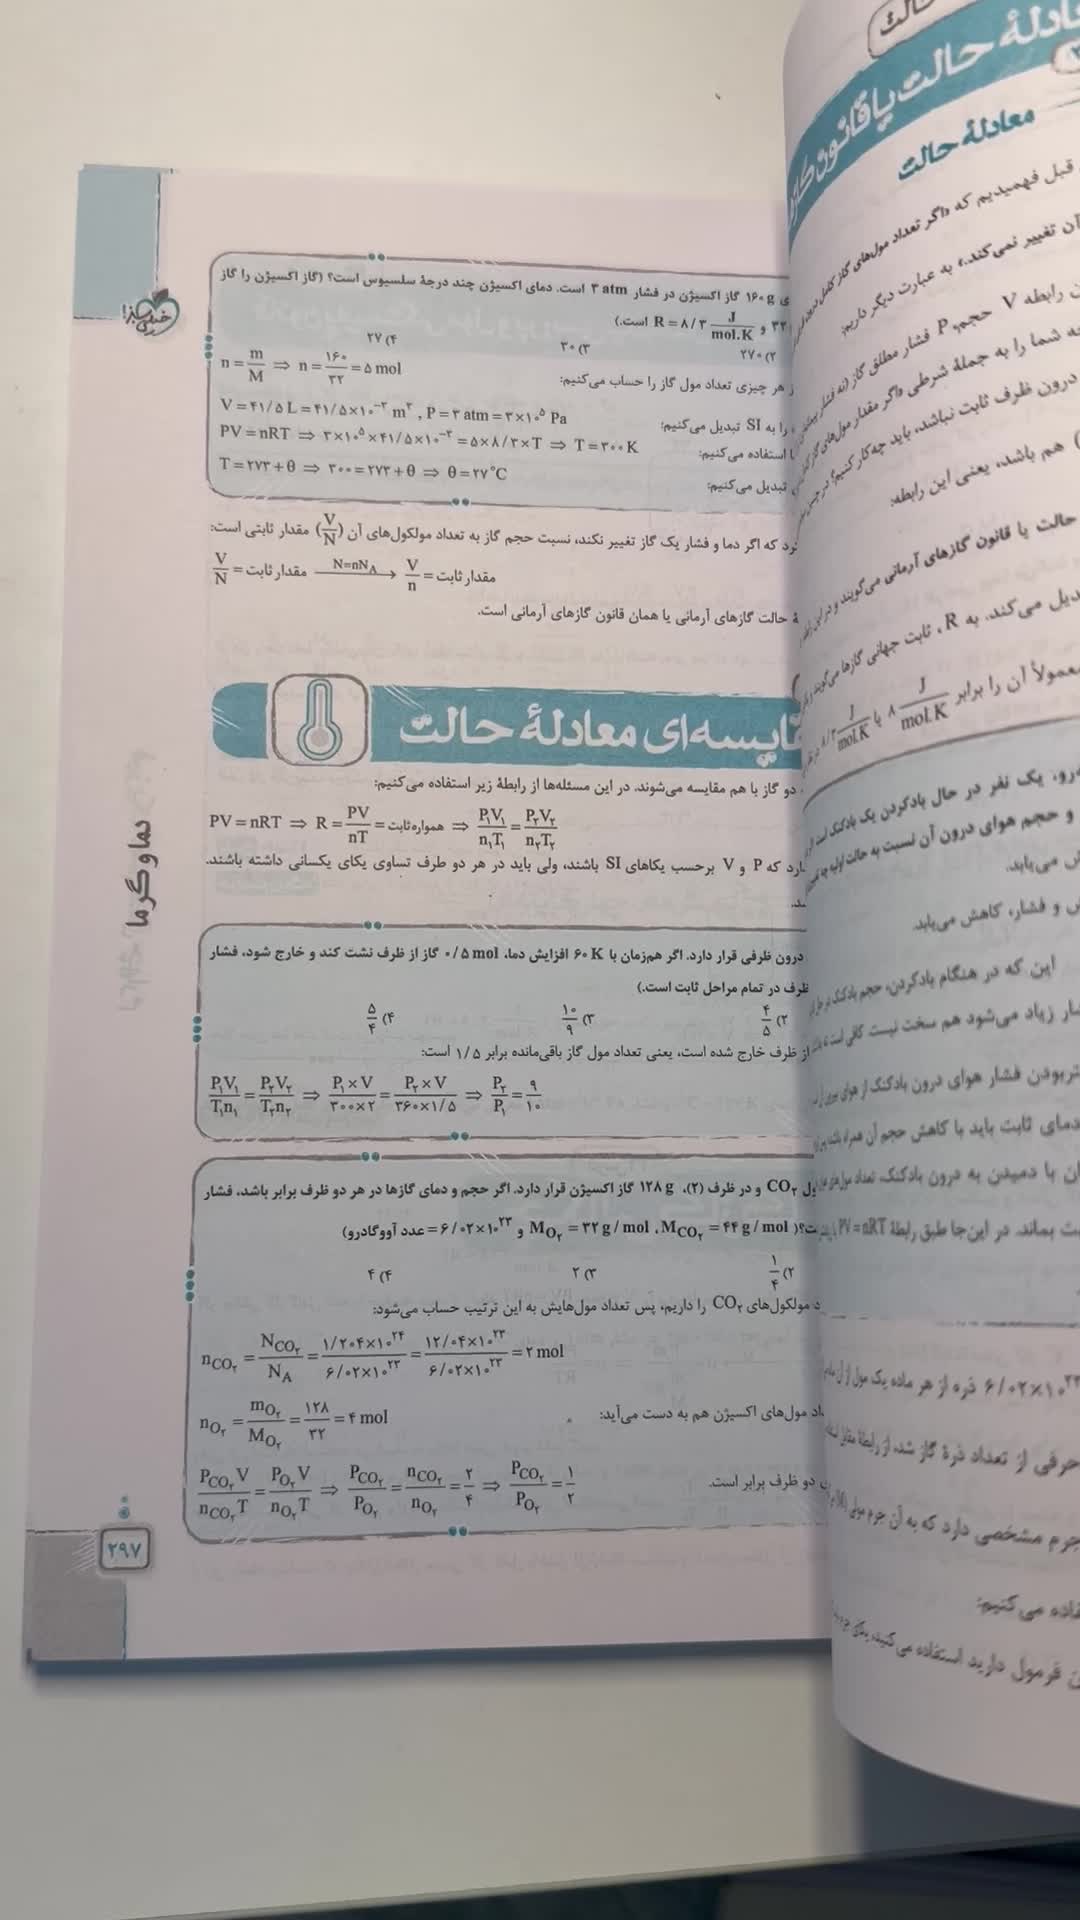 ی ۱۶۰ g گاز اکسیژن در فشار ۳ atm است. دمای اکسیژن چند درجهٔ سلسیوس است؟ (گاز اکسیژن را گاز
۳۲ و R = ۸/۳ J/mol.K است.)
۲) ۲۷۰ ۳) ۳۰ ۴) ۲۷
ز هر چیزی تعداد مول گاز را حساب می‌کنیم: n = m/M ⇒ n = ۱۶۰/۳۲ = ۵ mol
را به SI تبدیل می‌کنیم: V = ۴۱/۵ L = ۴۱/۵×۱۰^-۳ m^۳ , P = ۳ atm = ۳×۱۰^۵ Pa
ا استفاده می‌کنیم: PV = nRT ⇒ ۳×۱۰^۵×۴۱/۵×۱۰^-۳ = ۵×۸/۳×T ⇒ T = ۳۰۰ K
تبدیل می‌کنیم: T = ۲۷۳+θ ⇒ ۳۰۰ = ۲۷۳+θ ⇒ θ = ۲۷°C
رد که اگر دما و فشار یک گاز تغییر نکند، نسبت حجم گاز به تعداد مولکول‌های آن (V/N) مقدار ثابتی است:
V/N = مقدار ثابت N=nN_A → V/n = مقدار ثابت
هٔ حالت گازهای آرمانی یا همان قانون گازهای آرمانی است.
قایسه‌ای معادلهٔ حالت
دو گاز با هم مقایسه می‌شوند. در این مسئله‌ها از رابطهٔ زیر استفاده می‌کنیم:
PV = nRT ⇒ R = PV/nT = همواره ثابت ⇒ P₁V₁/n₁T₁ = P₂V₂/n₂T₂
ارد که P و V برحسب یکاهای SI باشند، ولی باید در هر دو طرف تساوی یکای یکسانی داشته باشند.
ند.
درون ظرفی قرار دارد. اگر هم‌زمان با ۶۰ K افزایش دما، ۰/۵ mol گاز از ظرف نشت کند و خارج شود، فشار
ظرف در تمام مراحل ثابت است.)
۲) ۴/۵ ۳) ۱۰/۹ ۴) ۵/۴
از ظرف خارج شده است، یعنی تعداد مول گاز باقی‌مانده برابر ۱/۵ است:
P₁V₁/T₁n₁ = P₂V₂/T₂n₂ ⇒ P₁×V/۳۰۰×۲ = P₂×V/۳۶۰×۱/۵ ⇒ P₂/P₁ = ۹/۱۰
ول CO₂ و در ظرف (۲)، ۱۲۸ g گاز اکسیژن قرار دارد. اگر حجم و دمای گازها در هر دو ظرف برابر باشد، فشار
ت؟( M_O₂ = ۳۲ g/mol ، M_CO₂ = ۴۴ g/mol و ۶/۰۲×۱۰^۲۳ = عدد آووگادرو)
۲) ۱/۴ ۳) ۲ ۴) ۴
د مولکول‌های CO₂ را داریم، پس تعداد مول‌هایش به این ترتیب حساب می‌شود:
n_CO₂ = N_CO₂/N_A = ۱/۲۰۴×۱۰^۲۴/۶/۰۲×۱۰^۲۳ = ۱۲/۰۴×۱۰^۲۳/۶/۰۲×۱۰^۲۳ = ۲ mol
اد مول‌های اکسیژن هم به دست می‌آید: n_O₂ = m_O₂/M_O₂ = ۱۲۸/۳۲ = ۴ mol
دو ظرف برابر است. P_CO₂V/n_CO₂T = P_O₂V/n_O₂T ⇒ P_CO₂/P_O₂ = n_CO₂/n_O₂ = ۲/۴ ⇒ P_CO₂/P_O₂ = ۱/۲
دما و گرما
خیلی سبز
۲۹۷
معادلهٔ حالت یا قانون
معادلهٔ حالت
قبل فهمیدیم که «اگر تعداد مول‌های گاز کامل درون
آن تغییر نمی‌کند.» به عبارت دیگر داریم:
ن رابطه V حجم، P فشار مطلق گاز (نه فشار
ه شما را به جملهٔ شرطی «اگر مقدار مول‌های گاز
درون ظرف ثابت نباشد، باید چه‌کار کنیم؟
) هم باشد، یعنی این رابطه:
حالت یا قانون گازهای آرمانی می‌گویند و در این
دیل می‌کند. به R، ثابت جهانی گازها می‌گویند و
معمولاً آن را برابر ۸ J/mol.K یا ۸/۳ J/mol.K
رو، یک نفر در حال بادکردن یک بادکنک است.
و حجم هوای درون آن نسبت به حالت اولیه
ش می‌یابد.
ش و فشار، کاهش می‌یابد.
این که در هنگام بادکردن، حجم بادکنک
ار زیاد می‌شود هم سخت نیست. کافی است
تربودن فشار هوای درون بادکنک از هوای بیرون
دمای ثابت باید با کاهش حجم آن همراه باشد
ان با دمیدن به درون بادکنک، تعداد مول‌های
ت بماند. در این‌جا طبق رابطهٔ PV = nRT
۶/۰۲×۱۰^۲۳ ذره از هر ماده یک مول از آن
حرفی از تعداد ذرهٔ گاز شد، از رابطهٔ مقابل
جرم مشخصی دارد که به آن جرم مولی (M)
فاده می‌کنیم:
ن فرمول دارید استفاده می‌کنید، یکای